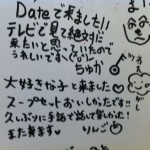 Dateで来ました!!
テレビで見て絶対に
来たいと思っていたので
うれしいです
ちゅか
大好きな子と来ました♥
スープセットおいしかったです!!
久しぶりに手話で話して楽しかった
また来ます♥ りんご